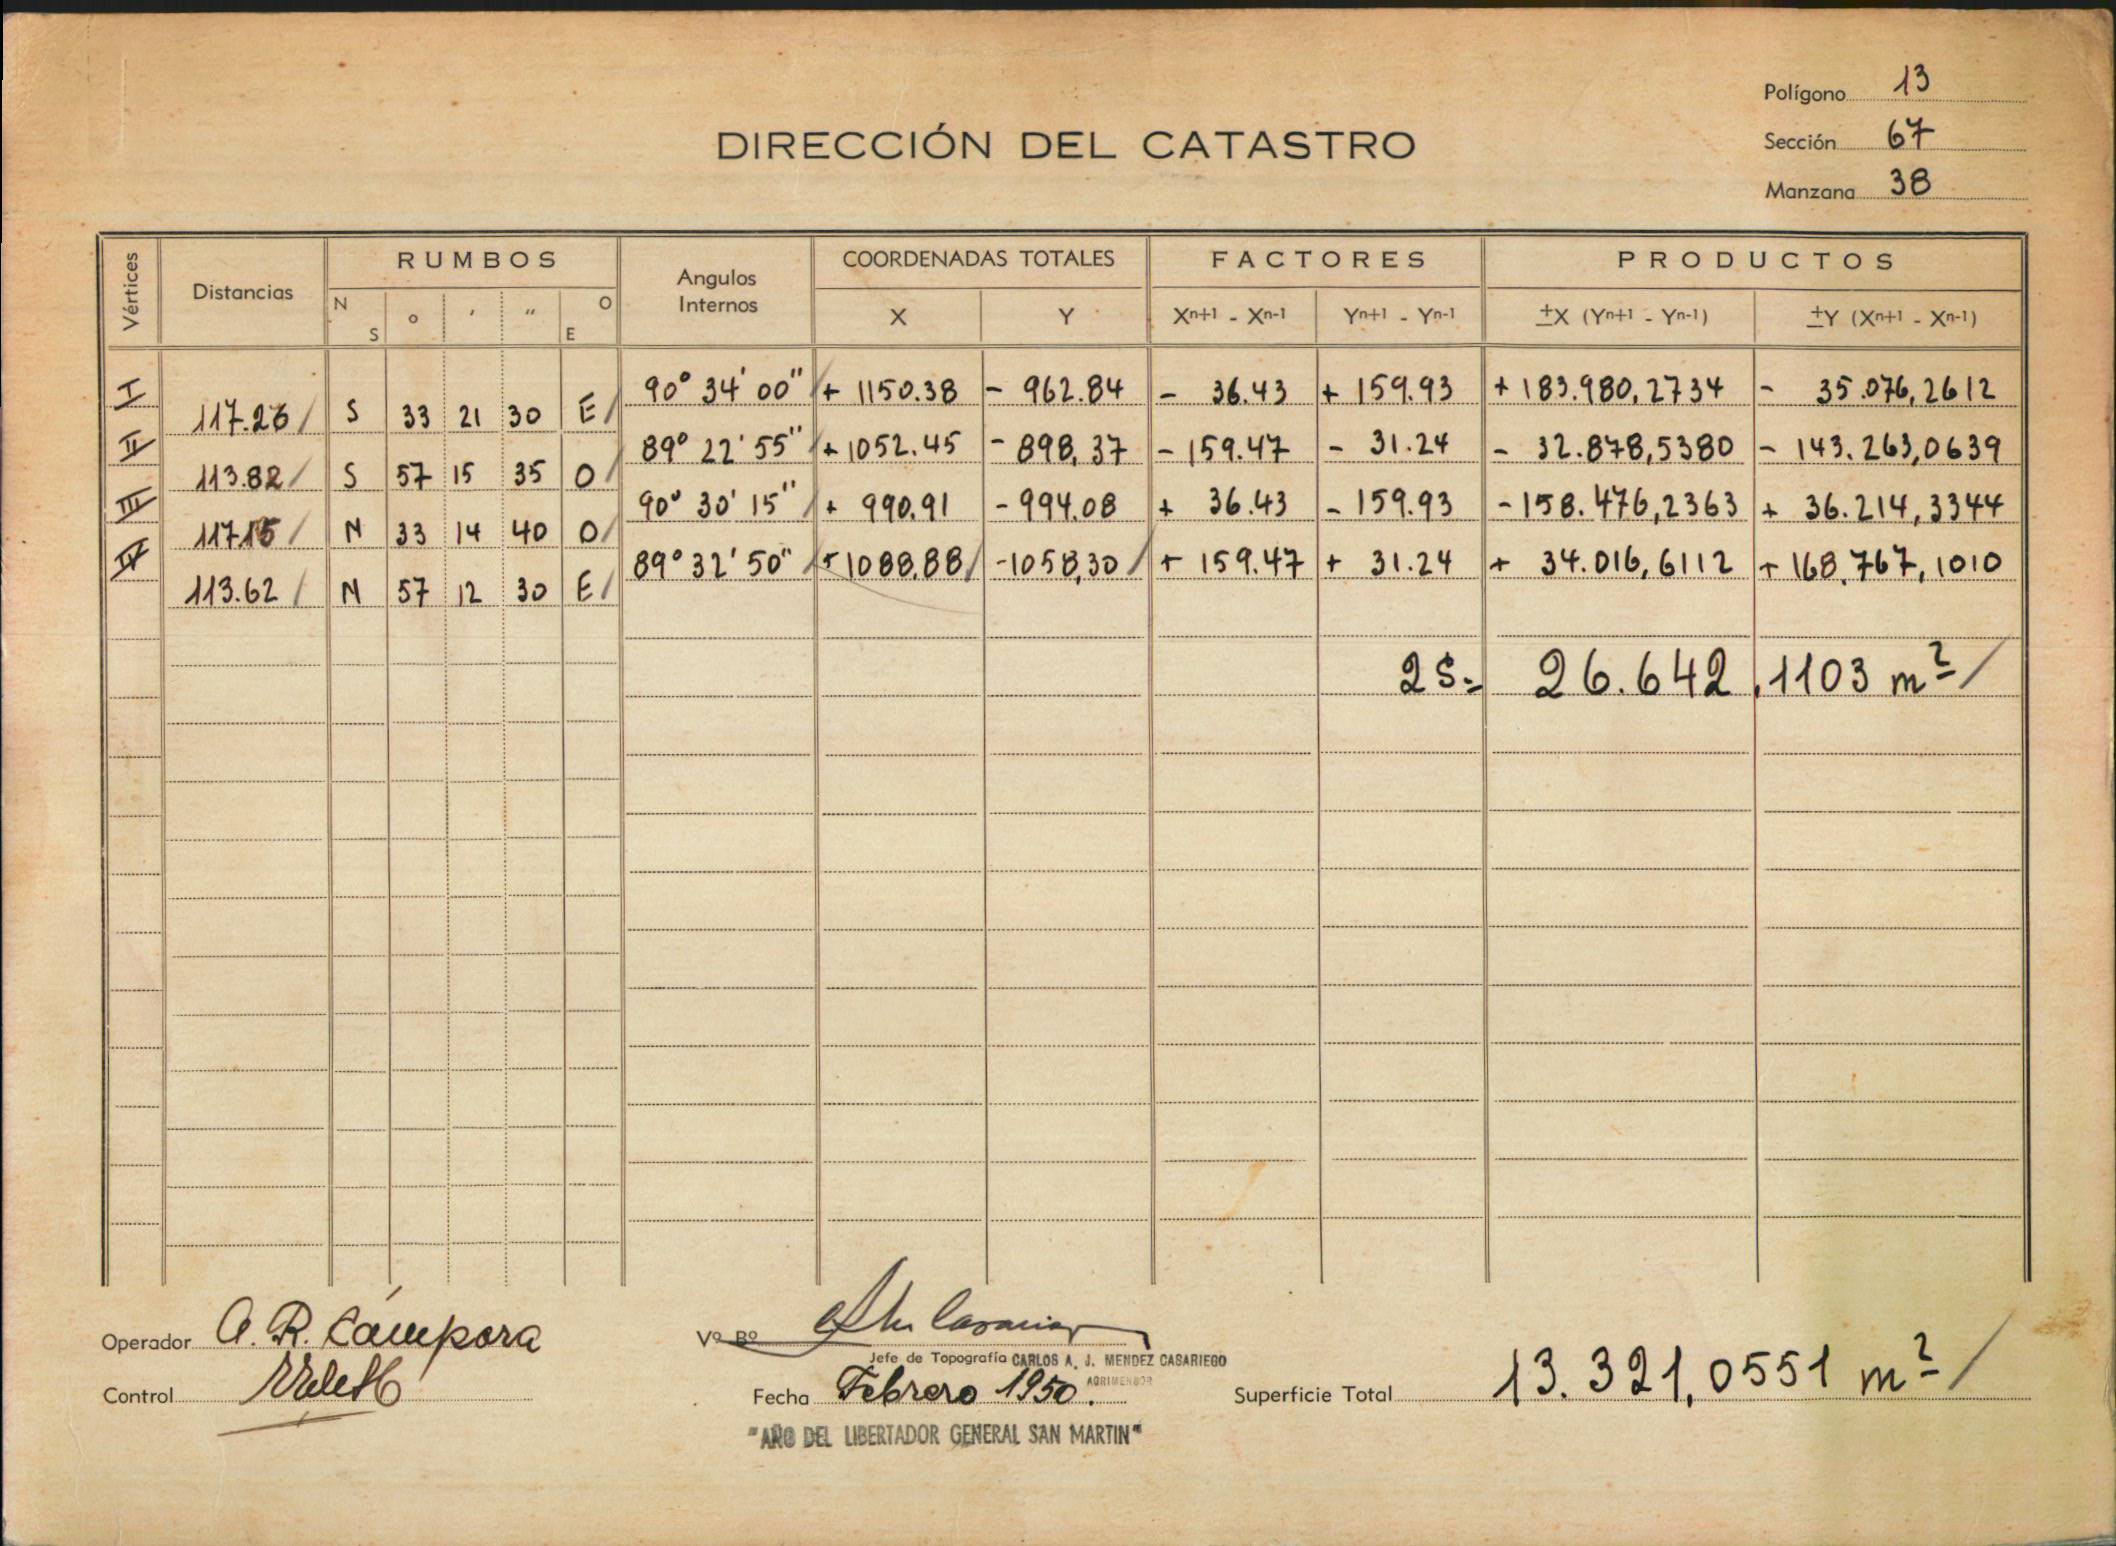 Polígono 13
DIRECCIÓN DEL CATASTRO
Sección 67
Manzana 38
Vértices Distancias RUMBOS Angulos Internos COORDENADAS TOTALES FACTORES PRODUCTOS
N S ° ′ ″ O E X Y Xn+1 - Xn-1 Yn+1 - Yn-1 ±X (Yn+1 - Yn-1) ±Y (Xn+1 - Xn-1)
I 90° 34' 00" + 1150.38 - 962.84 - 36.43 + 159.93 + 183.980,2734 - 35.076,2612
117.23 S 33 21 30 E
II 89° 22' 55" + 1052.45 - 898,37 - 159.47 - 31.24 - 32.878,5380 - 143.263,0639
113.82 S 57 15 35 O
III 90° 30' 15" + 990.91 - 994.08 + 36.43 - 159.93 - 158.476,2363 + 36.214,3344
117.15 N 33 14 40 O
IV 89° 32' 50" + 1088,88 - 1058,30 + 159.47 + 31.24 + 34.016,6112 + 168.767,1010
113.62 N 57 12 30 E
2 S = 26.642,1103 m²
Operador A. R. Cámpora
Vº Bº
Jefe de Topografía CARLOS A. J. MENDEZ CASARIEGO
AGRIMENSOR
Control
Fecha Febrero 1950.
Superficie Total 13.321,0551 m²
"AÑO DEL LIBERTADOR GENERAL SAN MARTIN"